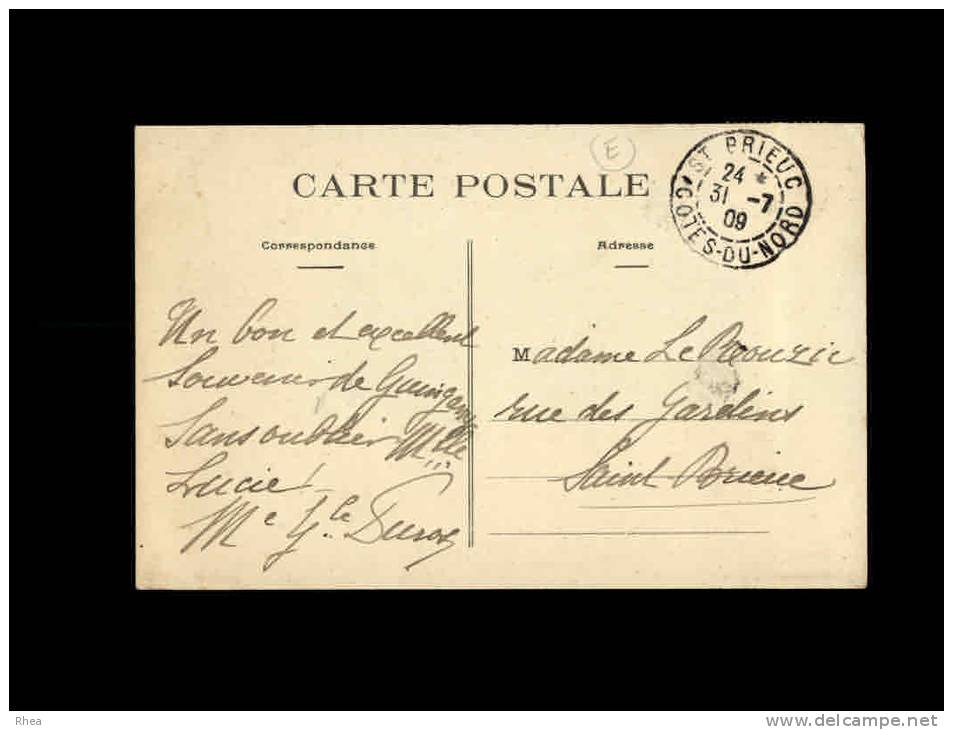 E
CARTE POSTALE
ST BRIEUC
24 *
31 -7
09
COTES-DU-NORD
Correspondance
Adresse
Un bon et excellent
Souvenir de Guingamp
Sans oublier Mlle
Lucie!
Me
Madame Le
rue des Gardins
Saint Brieuc
Rhea
www.delcampe.net